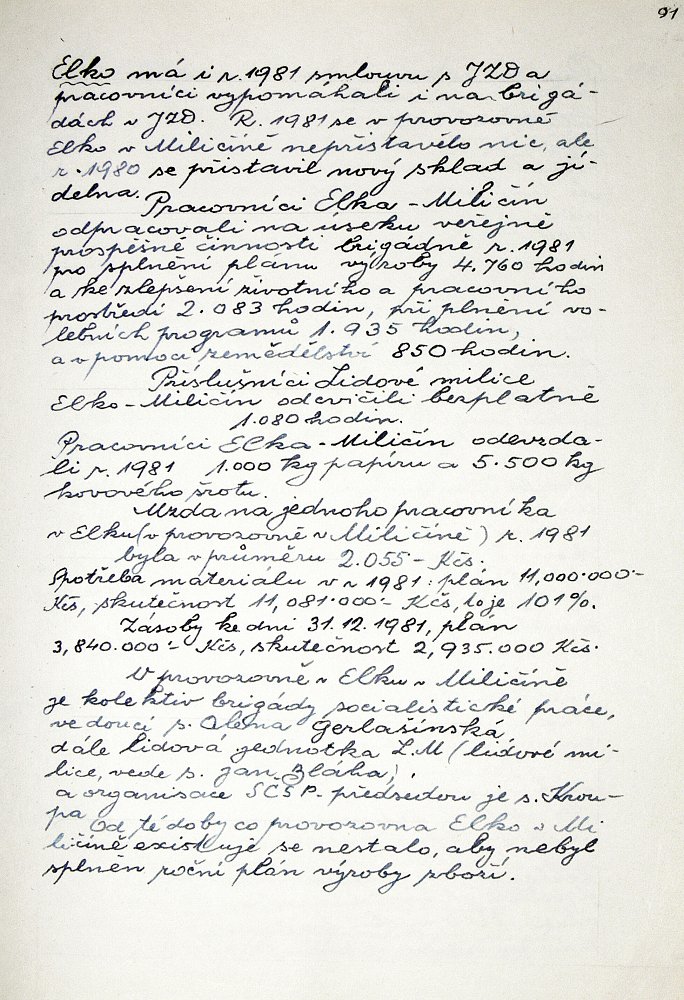 91
Elko má i r. 1981 smlouvu s JZD a
pracovníci vypomáhali i na brigá-
dách v JZD. R. 1981 se v provozovně
Elko v Miličíně nepřistavělo nic, ale
r. 1980 se přistavil nový sklad a jí-
delna.
Pracovníci Elka - Miličín
odpracovali na úseku veřejně
prospěšné činnosti brigádně r. 1981
pro splnění plánu výroby 4.760 hodin
a ke zlepšení životního a pracovního
prostředí 2.083 hodin, při plnění vo-
lebních programů 1.935 hodin,
a v pomoci zemědělství 850 hodin.
Příslušníci Lidové milice
Elko - Miličín odcvičili bezplatně
1.080 hodin.
Pracovníci Elka - Miličín odevzda-
li r. 1981 1.000 kg papíru a 5.500 kg
kovového šrotu.
Mzda na jednoho pracovníka
v Elku (v provozovně v Miličíně) r. 1981
byla v průměru 2.055 - Kčs.
Spotřeba materiálu v r 1981: plán 11,000.000 -
Kčs, skutečnost 11,081.000 - Kčs, to je 101%.
Zásoby ke dni 31.12.1981, plán
3,840.000 - Kčs, skutečnost 2,935.000 Kčs.
V provozovně v Elku v Miličíně
je kolektiv brigády socialistické práce,
vedoucí s. Alena Gerlašínská,
dále lidová jednotka L.M (lidové mi-
lice, vede s. Jan Bláha),
a organisace SČSP. předsedou je s. Krou-
pa
Od té doby co provozovna Elko v Mi
ličíně existuje se nestalo, aby nebyl
splněn roční plán výroby zboží.